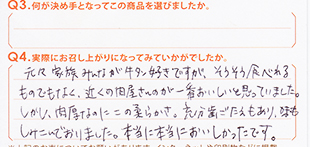 Q3.何が決め手となってこの商品を選びましたか。
Q4.実際にお召し上がりになってみていかがでしたか。
元々家族みんなが牛タン好きですが、そうそう食べれる
ものでもなく、近くの肉屋さんが一番おいしいと思っていました。
しかし、肉厚なのにこの柔らかさ。充分歯ごたえもあり、味も
しみこんでおりました。本当に本当においしかったです。